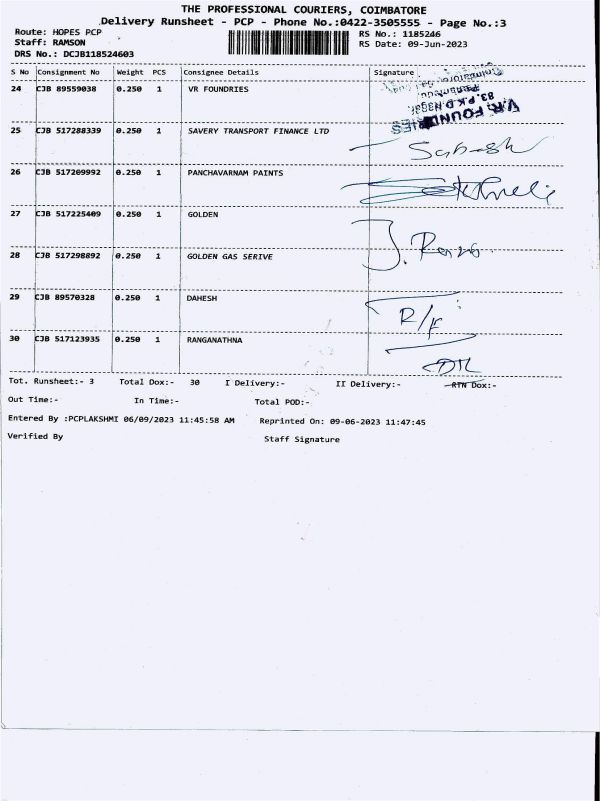 THE PROFESSIONAL COURIERS, COIMBATORE
Delivery Runsheet - PCP - Phone No.:0422-3505555 - Page No.:3
Route: HOPES PCP RS No.: 1185246
Staff: RAMSON RS Date: 09-Jun-2023
DRS No.: DCJB118524603
S No Consignment No Weight PCS Consignee Details Signature
24 CJB 89559038 0.250 1 VR FOUNDRIES
V.R. FOUNDRIES
25 CJB 517288339 0.250 1 SAVERY TRANSPORT FINANCE LTD
Subash
26 CJB 517209992 0.250 1 PANCHAVARNAM PAINTS
27 CJB 517225409 0.250 1 GOLDEN
28 CJB 517298892 0.250 1 GOLDEN GAS SERIVE
29 CJB 89570328 0.250 1 DAHESH
R/F
30 CJB 517123935 0.250 1 RANGANATHNA
Tot. Runsheet:- 3 Total Dox:- 30 I Delivery:- II Delivery:- RTN Dox:-
Out Time:- In Time:- Total POD:-
Entered By :PCPLAKSHMI 06/09/2023 11:45:58 AM Reprinted On: 09-06-2023 11:47:45
Verified By Staff Signature